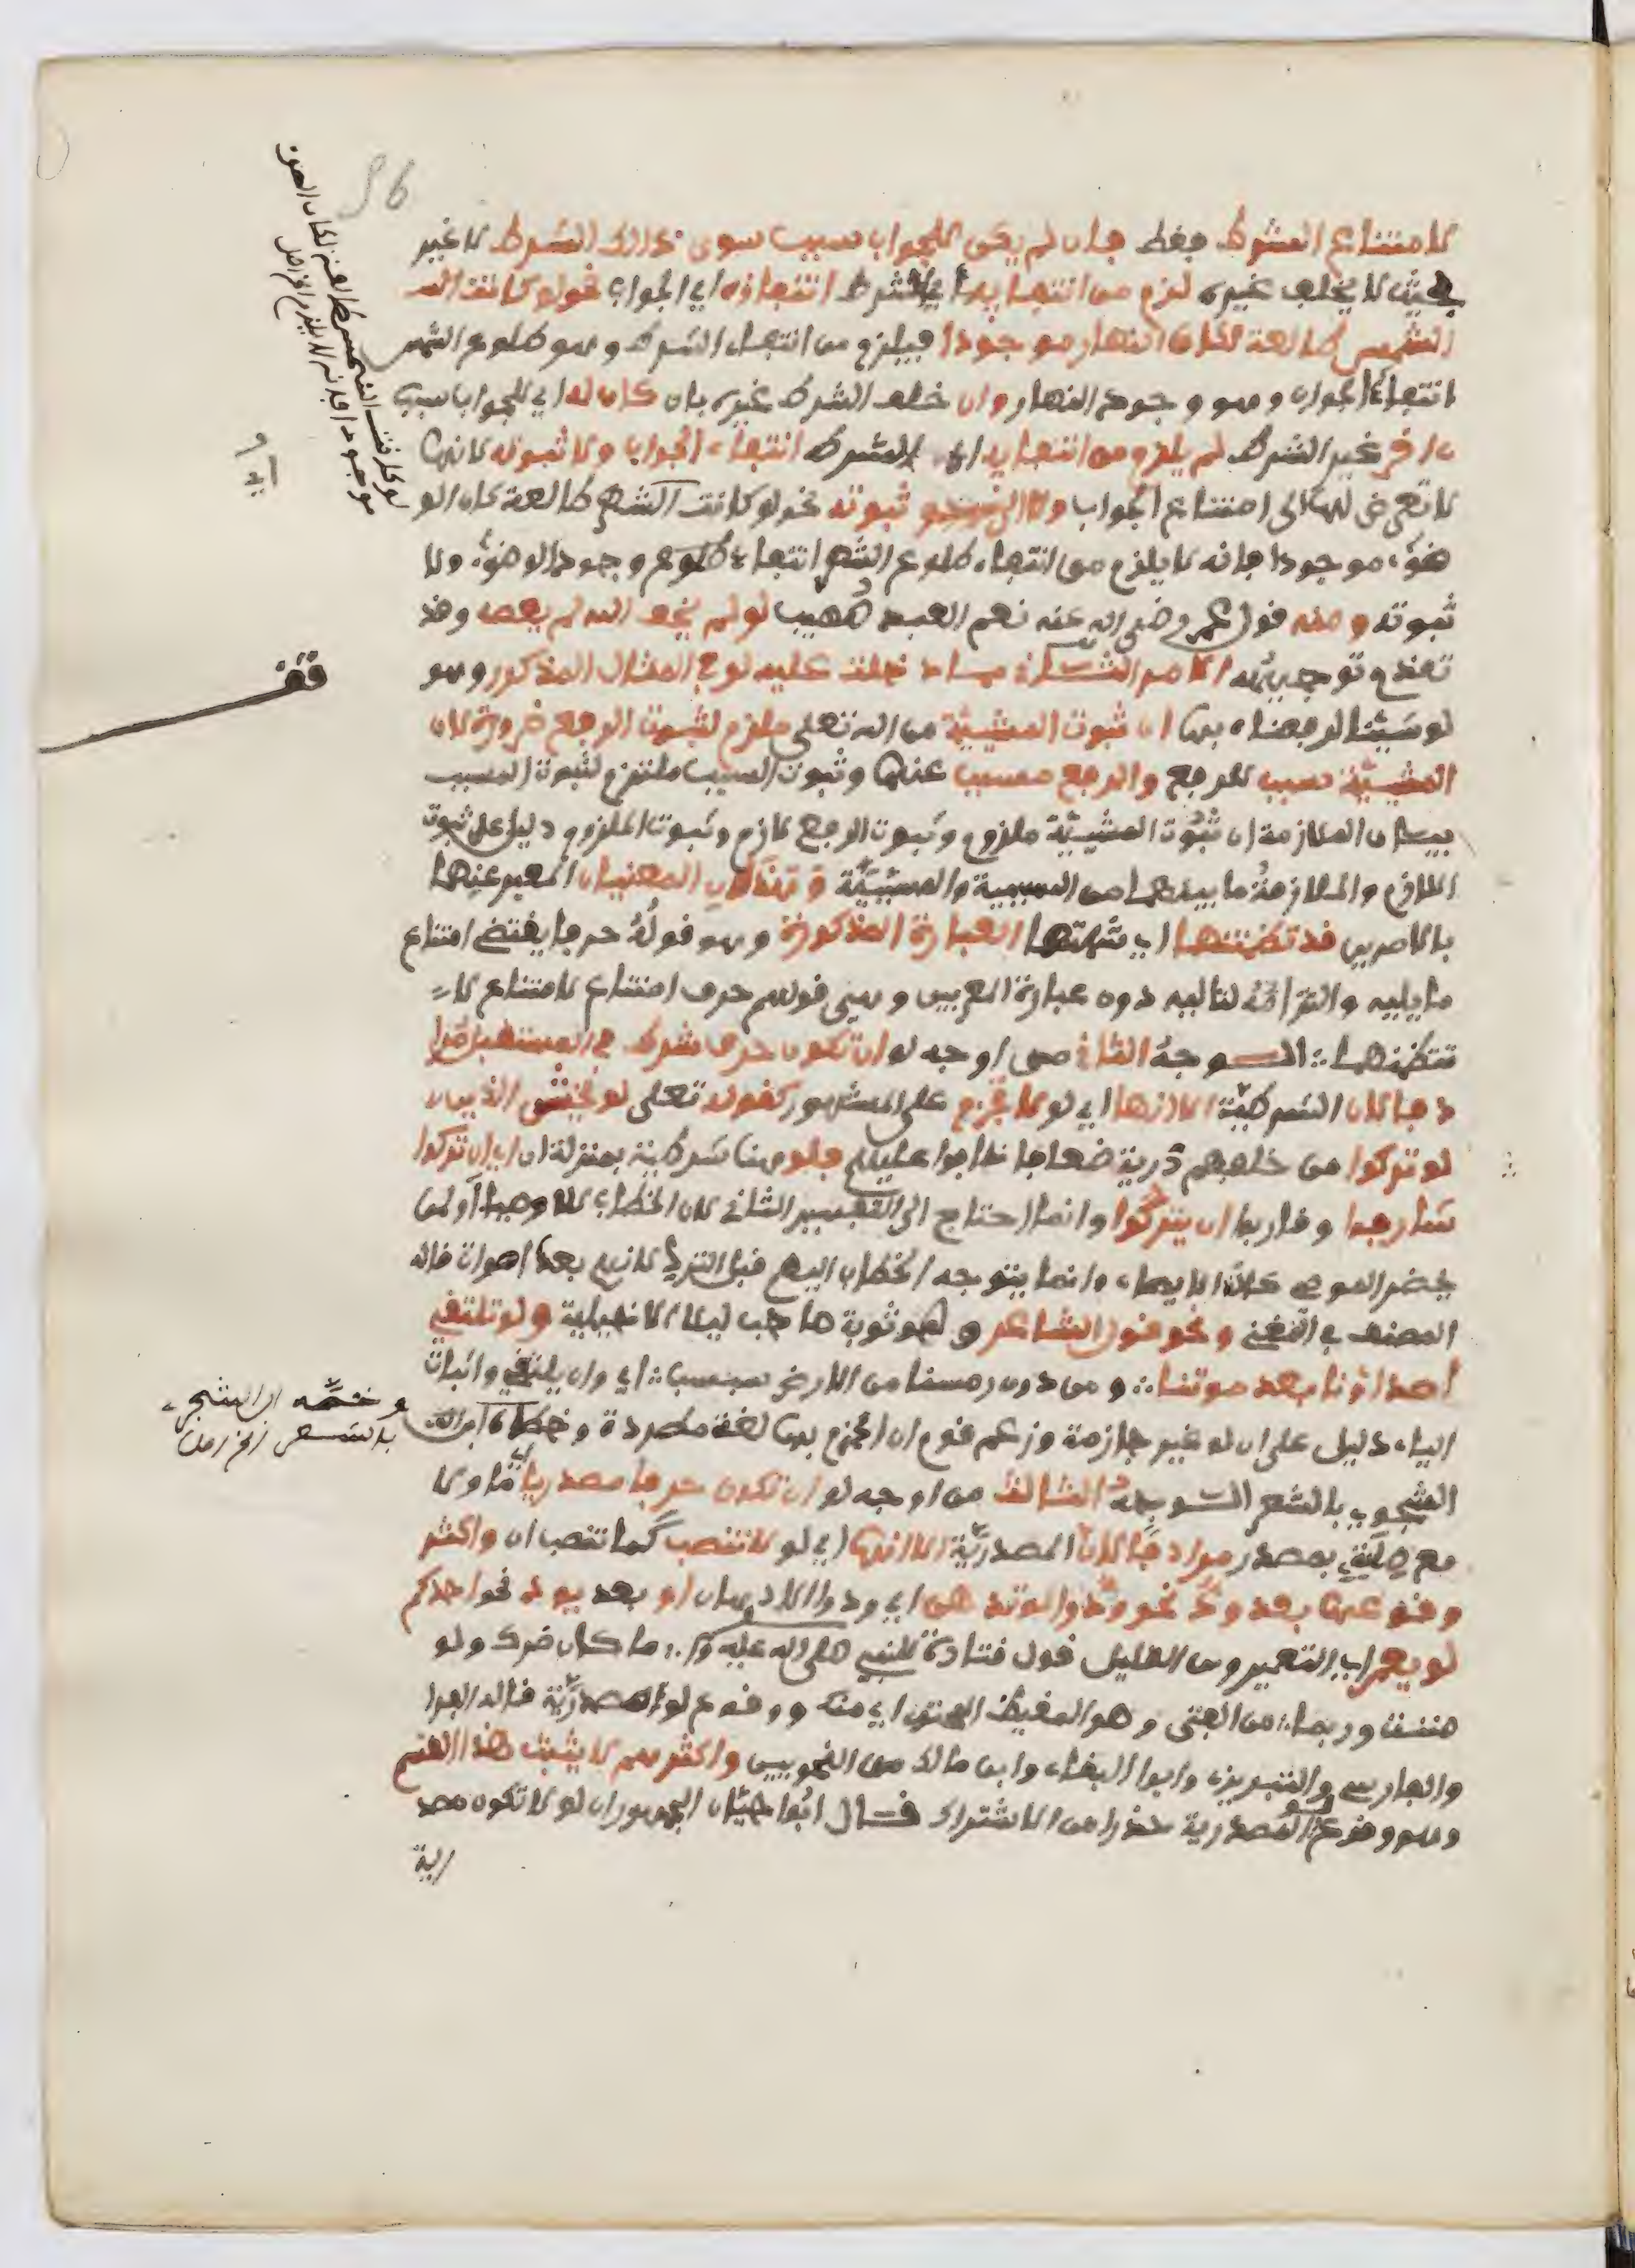 لامتناع الشرط فقط فان لم يكن للجواب سبب سوى ذالك الشرط لا غير
بحيث لا يخلف غيره لزم من انتفايه اي الشرط انتفاؤه اي الجواب نحو لو كانت الشـ
الشمس طالعة لكان النهار موجودا فيلزم من انتفاء الشرط وهو طلوع الشمس
انتفاء الجواب وهو وجود النهار وان خلف الشرط غيره بان كان له اي للجواب سبب
ءاخر غير الشرط لم يلزم من انتفايه اي الشرط انتفاء الجواب ولا ثبوته لانها
لا تعرض لها الى امتناع الجواب ولا الى ثبوته نحو لو كانت الشمس طالعة كان الو
ضوء موجودا فانه لا يلزم من انتفاء طلوع الشمس انتفاء وجود الوضوء ولا
ثبوته ومنه قول عمر رضي الله عنه نعم العبد صهيب لو لم يخف الله لم يعصه وقد
تقدم توجيهه الامر الثاني مما دخلت عليه لو في المثال المذكور وهو
لو شئنا لرفعناه بها ان ثبوت المشيئة من الله تعلى ملزم لثبوت الرفع ضرورة لان
المشيئة سبب للرفع والرفع مسبب عنها وثبوت السبب ملتزم لثبوت المسبب
بيان الملازمة ان ثبوت المشيئة ملزوم وثبوت الرفع لازم وثبوت الملزوم دليل على ثبوت
اللازم والملازمة ما بينهما من السببية والمسببية وهذان المعنيان المعبر عنهما
بالامرين قد تضمنتهما اي شملتهما العبارة المذكورة وهو قوله حرف يقتضي امتناع
ما يليه والتزامه لتاليه دون عبارة المعربين وهي قولهم حرف امتناع لامتناع لا
تتضمنهما ∴ الوجه الثاني من اوجه لو ان تكون حرف شرط في المستقبل مرا
دفا لان الشرطية الا انها اي لو لا تجزم على المشهور كقوله تعلى لو ليخش الذين
لو تركوا من خلفهم ذرية ضعافا خافوا عليهم فلو هنا شرطية بمنزلة ان اي ان تركوا
شارفوا وقاربوا ان يتركوا وانما احتاج الى التفسير الثاني لان الخطاب للاوصيا او لمن
يحضر الموصي حالة الايصاء وانما يتوجه الخطاب اليهم قبل الترك لانهم بعد اموات قاله
المصنف في المغني ونحو قول الشاعر وهو توبة صاحب ليلا الاخيلية ولو تلتقي
اصداؤنا بعد موتنا ∴ ومن دون رمسنا من الارض سبسب ∴ اي وان يلتقي واثبات
الياء دليل على ان لو غير جازمة وزعم قوم ان الجزم بها لغة مطردة وخصه ابن
الشجري بالشعر الوجه الثالث من اوجه لو ان تكون حرفا مصدريا ما ولا
مع صلته بمصدر مرادفا لان المصدرية الا انها اي لو لا تنصب كما تنصب ان واكثر
وقوعها بعد ود نحو ودوا لو تدهن اي ودوا الادهان او بعد يود نحو احدكم
لو يعمر اي التعمير ومن القليل قول قتادة للنبي صلى الله عليه وآ ∴ ما كان ضرك ولو
مننت وربما ∴ من الفتى وهو المغيظ المحنق اي منك ووقوع لو المصدرية قاله الفرا
والفارسي والتبريزي وابوا البقاء وابن مالك من النحويين واكثرهم لا يثبت هذا القسم
وهو وقوع لو المصدرية حذرا من الاشتراك قال ابوا حيان الجمهور ان لو لا تكون مصد
رية
96
لو كانت الشمس طالعة لكان الضوء
موجودا فانه لا يلزم
قف
وخصه ابن الشجري
بالشعر